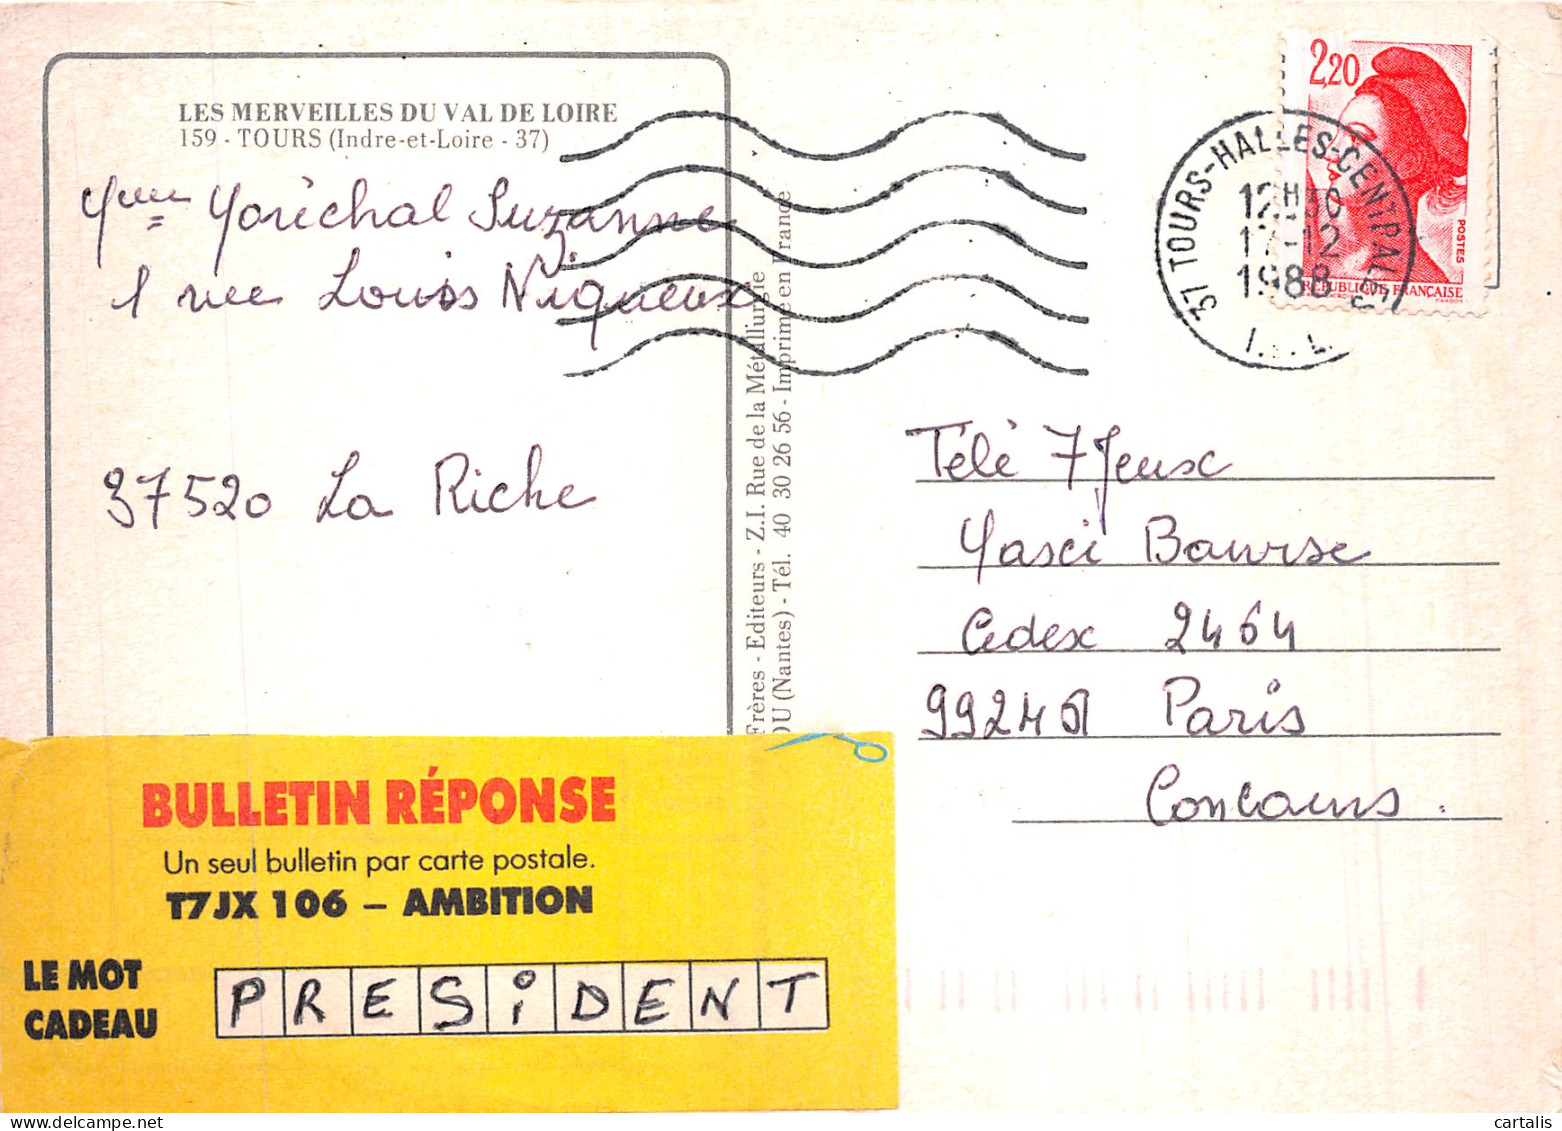 LES MERVEILLES DU VAL DE LOIRE
159 - TOURS (Indre-et-Loire - 37)
Mme Maréchal Suzanne
1 rue Louis Niqueux
37520 La Riche
Frères - Editeurs - Z.I. Rue de la Métallurgie
OU (Nantes) - Tél. 40 30 26 56 - Imprimé en France
2,20
POSTES
REPUBLIQUE FRANÇAISE
37 TOURS-HALLES-CENTRALES
12H30
17-12
1988
I.-L.
Télé 7 Jeux
Masci Bourse
Cedex 2464
99246 Paris
Concours.
BULLETIN RÉPONSE
Un seul bulletin par carte postale.
T7JX 106 – AMBITION
LE MOT
CADEAU
PRESiDENT
cartalis